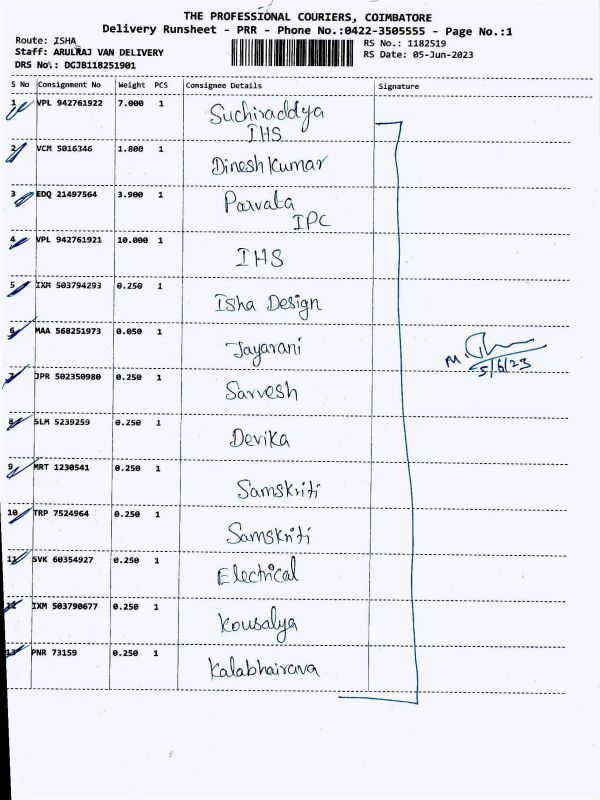 THE PROFESSIONAL COURIERS, COIMBATORE
Delivery Runsheet - PRR - Phone No.:0422-3505555 - Page No.:1
Route: ISHA
RS No.: 1182519
Staff: ARULRAJ VAN DELIVERY
RS Date: 05-Jun-2023
DRS No.: DGJB118251901
S No Consignment No Weight PCS Consignee Details Signature
1 VPL 942761922 7.000 1 Suchiraddya
IHS
2 VCM 5016346 1.800 1 Dinesh Kumar
3 EDQ 21497564 3.900 1 Parvata
IPC
4 VPL 942761921 10.000 1 IHS
5 IXM 503794293 0.250 1 Isha Design
6 MAA 568251973 0.050 1 Jayarani
M.
5/6/23
7 JPR 502350980 0.250 1 Sarvesh
8 SLM 5239259 0.250 1 Devika
9 MRT 1230541 0.250 1 Samskriti
10 TRP 7524964 0.250 1 Samskriti
11 SVK 60354927 0.250 1 Electrical
12 IXM 503790677 0.250 1 Kousalya
13 PNR 73159 0.250 1 Kalabhairava